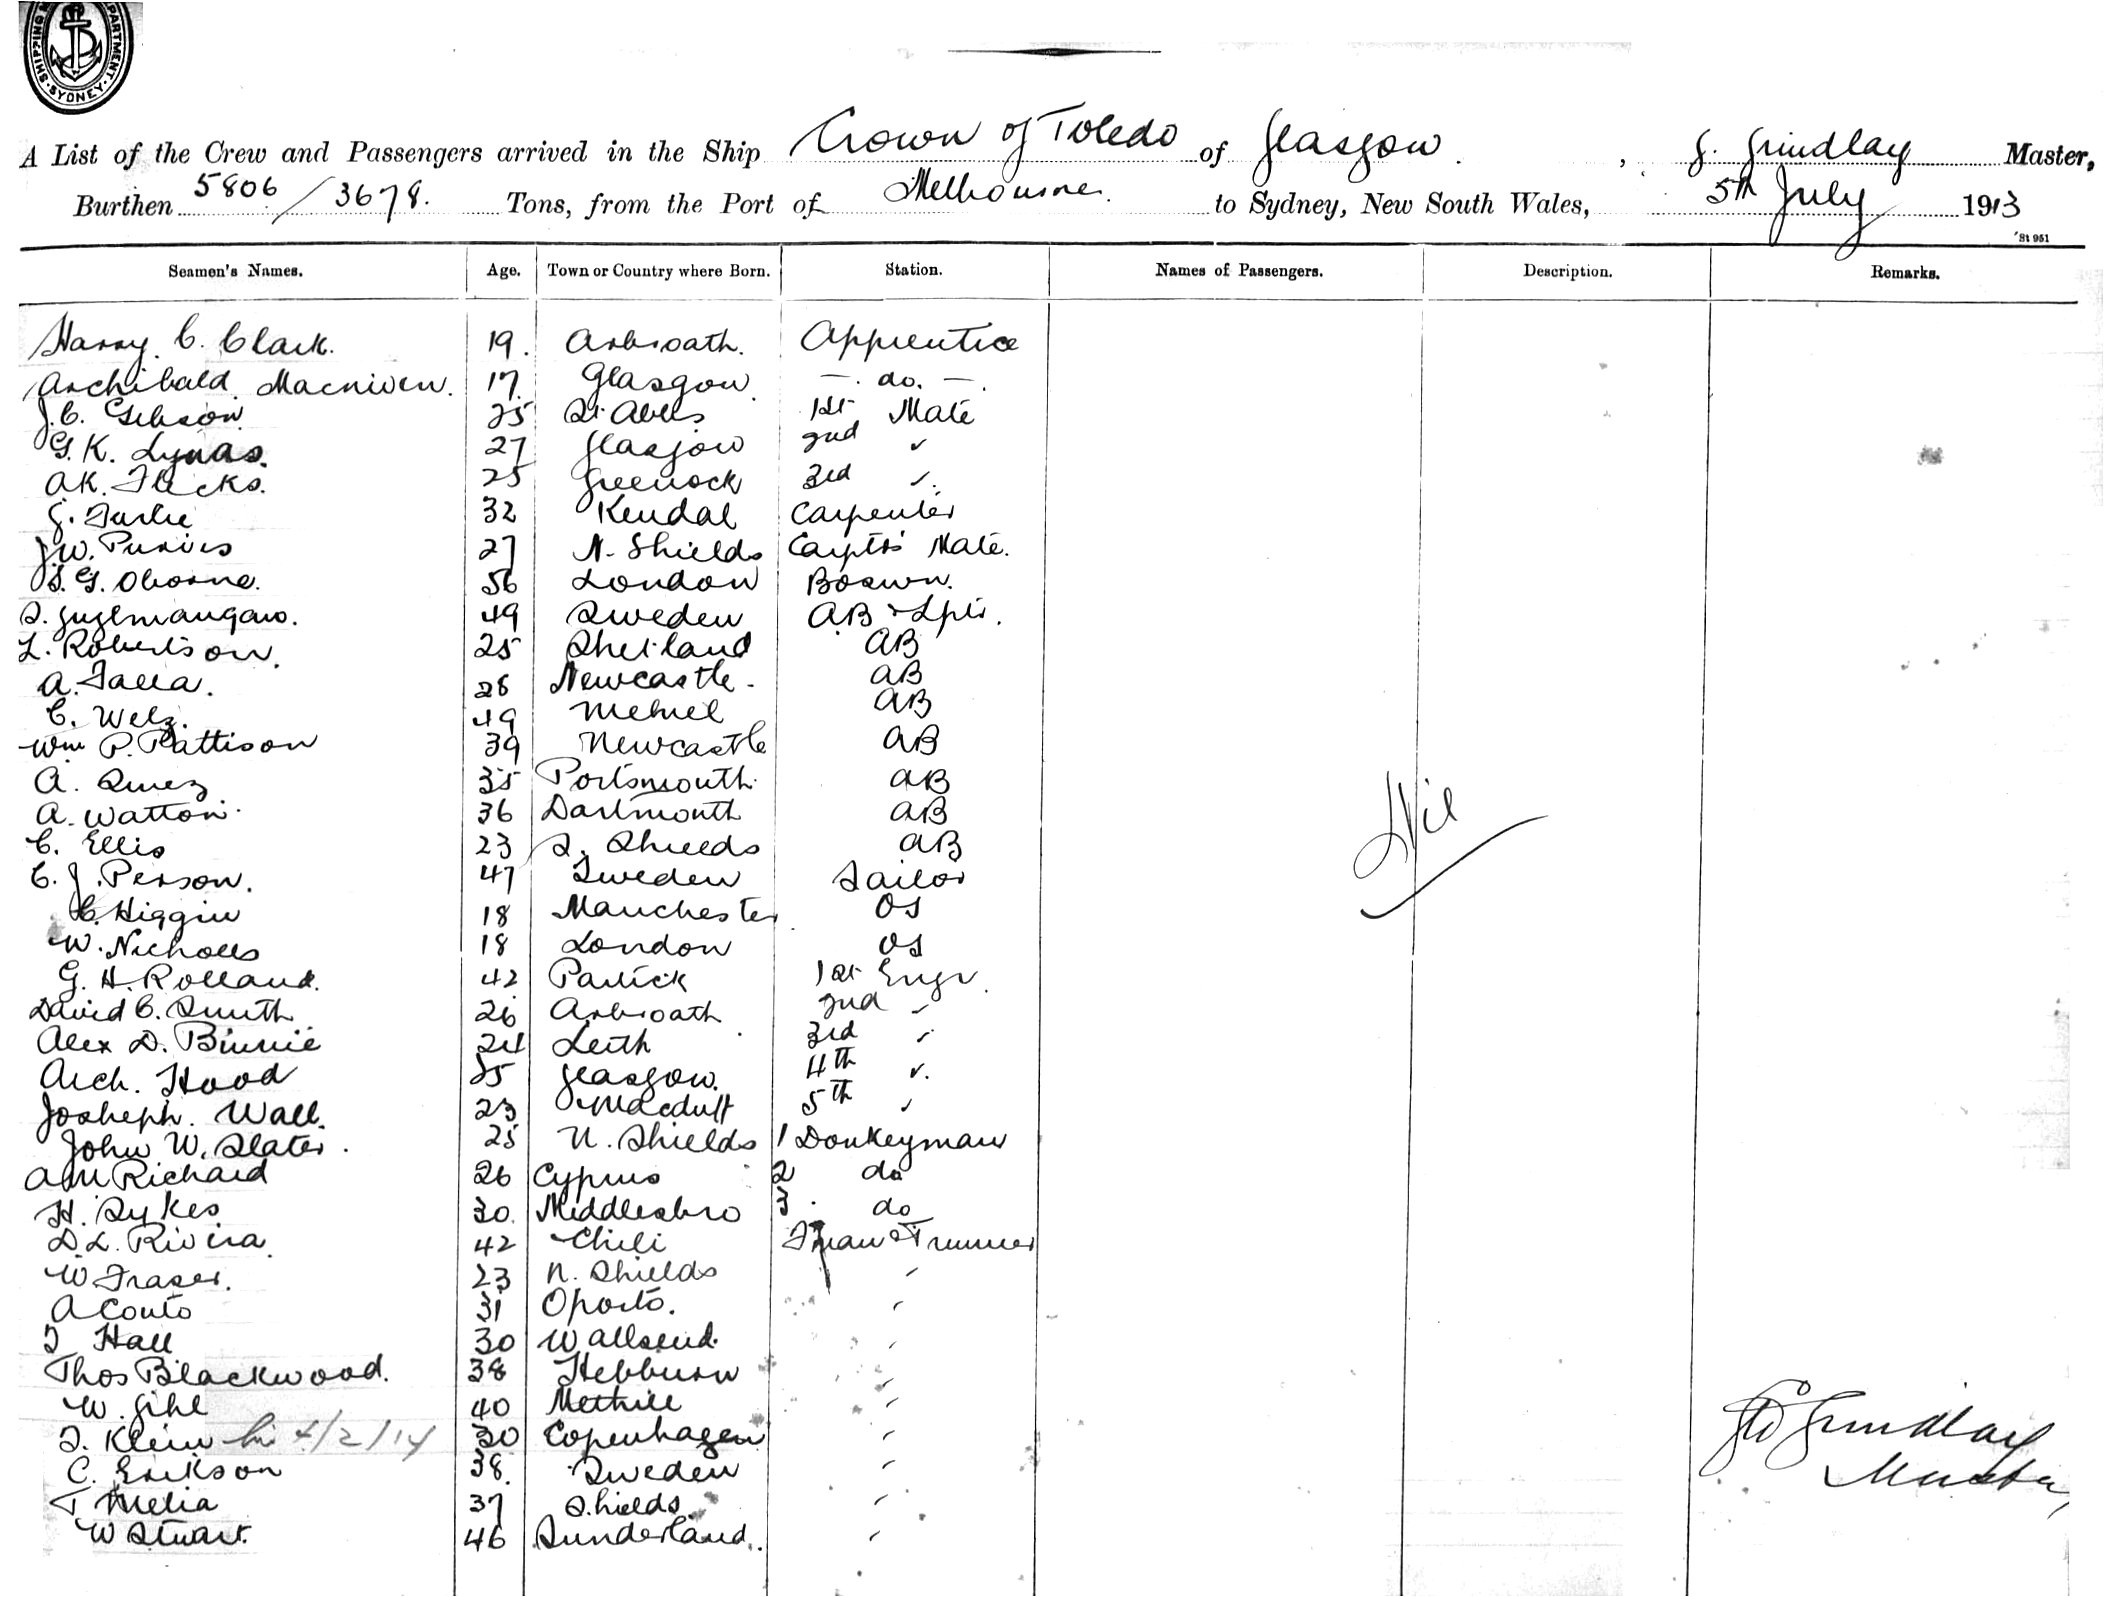 SHIPPING DEPARTMENT SYDNEY
A List of the Crew and Passengers arrived in the Ship Crown of Toledo of Glasgow, G. Grindlay Master,
Burthen 5806/3678. Tons, from the Port of Melbourne to Sydney, New South Wales, 5th July 1913
St 951
Seamen's Names. Age. Town or Country where Born. Station. Names of Passengers. Description. Remarks.
Harry C. Clark. 19. Arbroath. Apprentice
Archibald Macniven. 17. Glasgow - do. -
J. C. Gibson 25 St. Abbs 1st Mate
G. K. Lynas. 27 Glasgow 2nd "
A K. Flicks. 25 Greenock 3rd "
32 Kendal Carpenter
J. W. Purvis 27 N. Shields Carptrs Mate.
S. G. Oborne. 56 London Boswn.
49 Sweden AB & Lptr.
L. Robertson. 25 Shetland AB
A. Falla. 28 Newcastle. AB
C. Welz. 49 AB
Wm P. Pattison 39 Newcastle AB
A. 35 Portsmouth. AB
A. Watton. 36 Dartmouth AB
C. Ellis 23 S. Shields AB
C. J. Person. 47 Sweden Sailor
C. Higgin 18 Manchester OS
W. Nicholls 18 London OS
G. H. Rolland. 42 Partick 1st Engr.
David C. Smith 26 Arbroath 2nd "
Alex D. Binnie 24 Leith 3rd "
Arch. Hood 25 Glasgow. 4th "
Josheph. Wall. 23 Macduff 5th "
John W. Slater. 25 N. Shields 1 Donkeyman
A M Richard 26 Cyprus 2 do
H. Sykes 30. Middlesbro 3. do
D. L. Rivera 42 Chili Fman & Trimmer
W Fraser. 23 N. Shields "
A Couto 31 Oporto. "
T Hall 30 Wallsend. "
Thos Blackwood. 38 Hebburn "
W. Gihl 40 Methill "
Nil
J. Klein 4/2/14 30 Copenhagen "
C. Erikson 38. Sweden "
T Melia 37 S.hields "
W Stuart. 46 Sunderland. "
G W Grindlay
Master